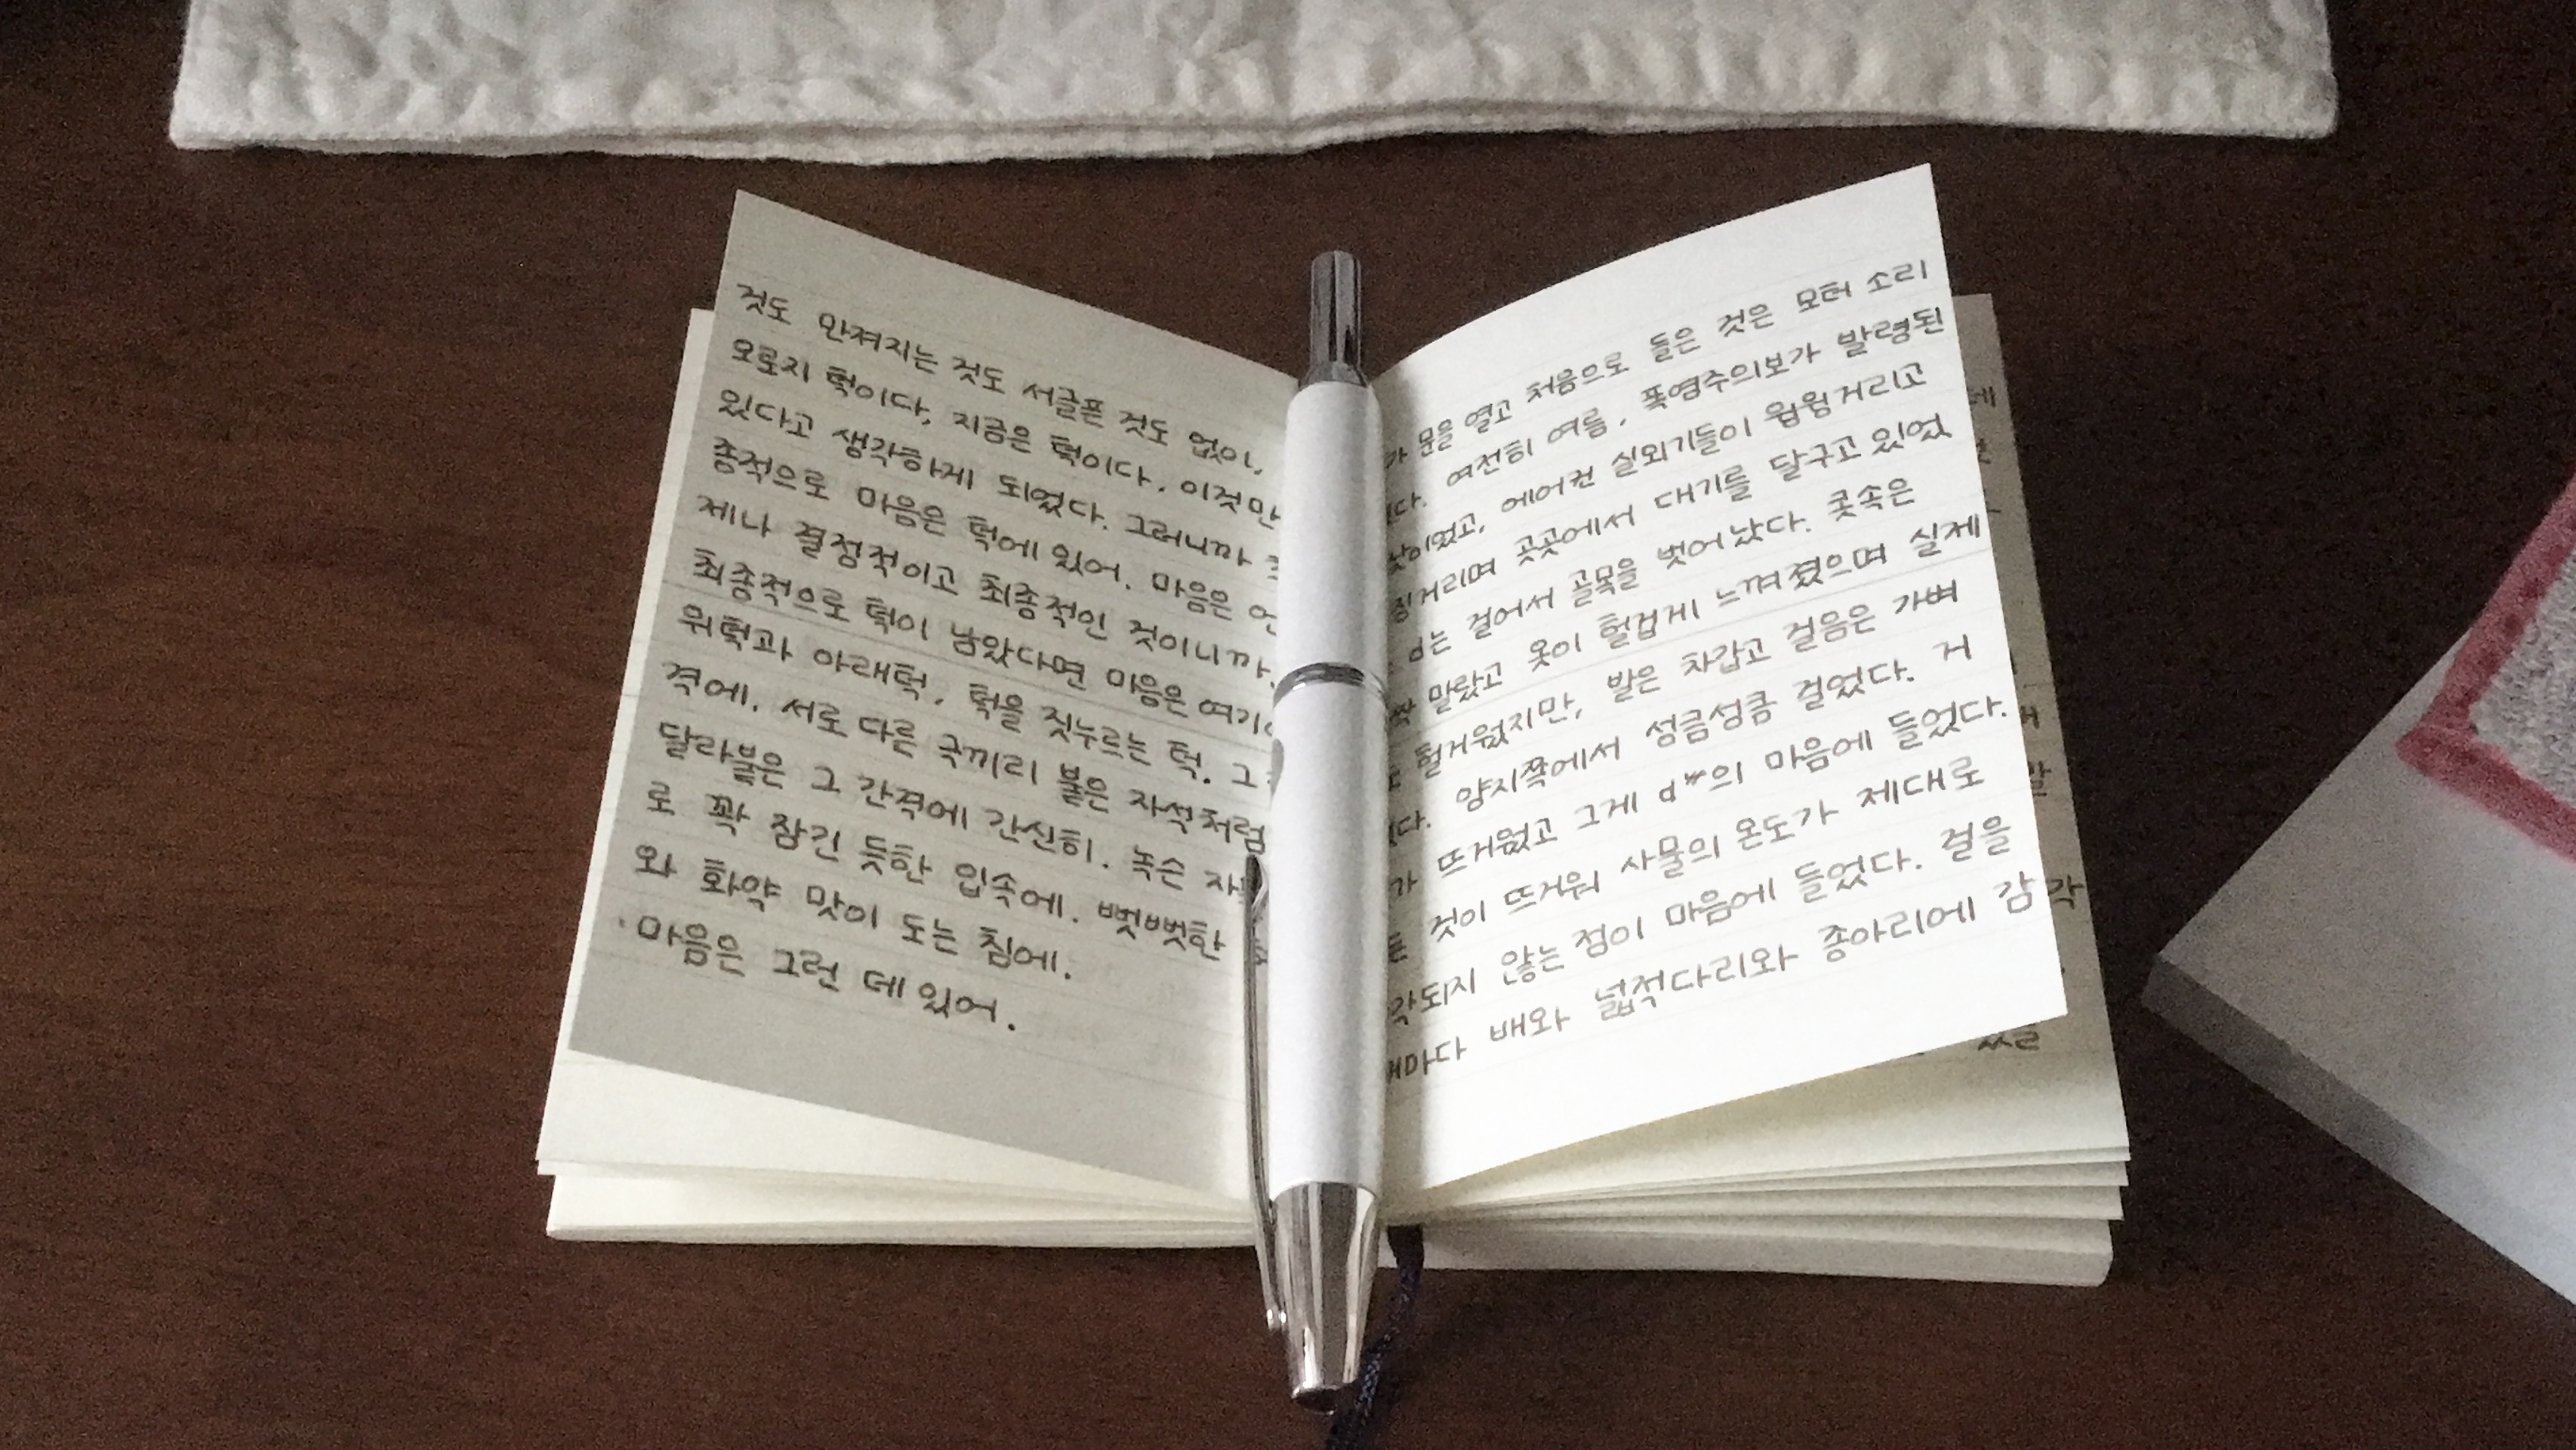 것도 만져지는 것도 서글픈 것도 없이,
오로지 턱이다, 지금은 턱이다. 이것만
있다고 생각하게 되었다. 그러니까
종적으로 마음은 턱에 있어. 마음은 언
제나 결정적이고 최종적인 것이니까.
최종적으로 턱이 남았다면 마음은 여기
위턱과 아래턱, 턱을 짓누르는 턱. 그
격에. 서로 다른 극끼리 붙은 자석처럼
달라붙은 그 간격에 간신히. 녹슨 자
로 꽉 잠긴 듯한 입속에. 뻣뻣한
와 화약 맛이 도는 침에.
마음은 그런 데 있어.
가 문을 열고 처음으로 들은 것은 모터 소리
다. 여전히 여름, 폭염주의보가 발령된
낮이었고, 에어컨 실외기들이 웜웜거리고
징거리며 곳곳에서 대기를 달구고 있었
d는 걸어서 골목을 벗어났다. 콧속은
말랐고 옷이 헐겁게 느껴졌으며 실제
헐거웠지만, 발은 차갑고 걸음은 가벼
다. 양지쪽에서 성큼성큼 걸었다. 거
가 뜨거웠고 그게 d의 마음에 들었다.
것이 뜨거워 사물의 온도가 제대로
각되지 않는 점이 마음에 들었다. 걸을
때마다 배와 넓적다리와 종아리에 감각